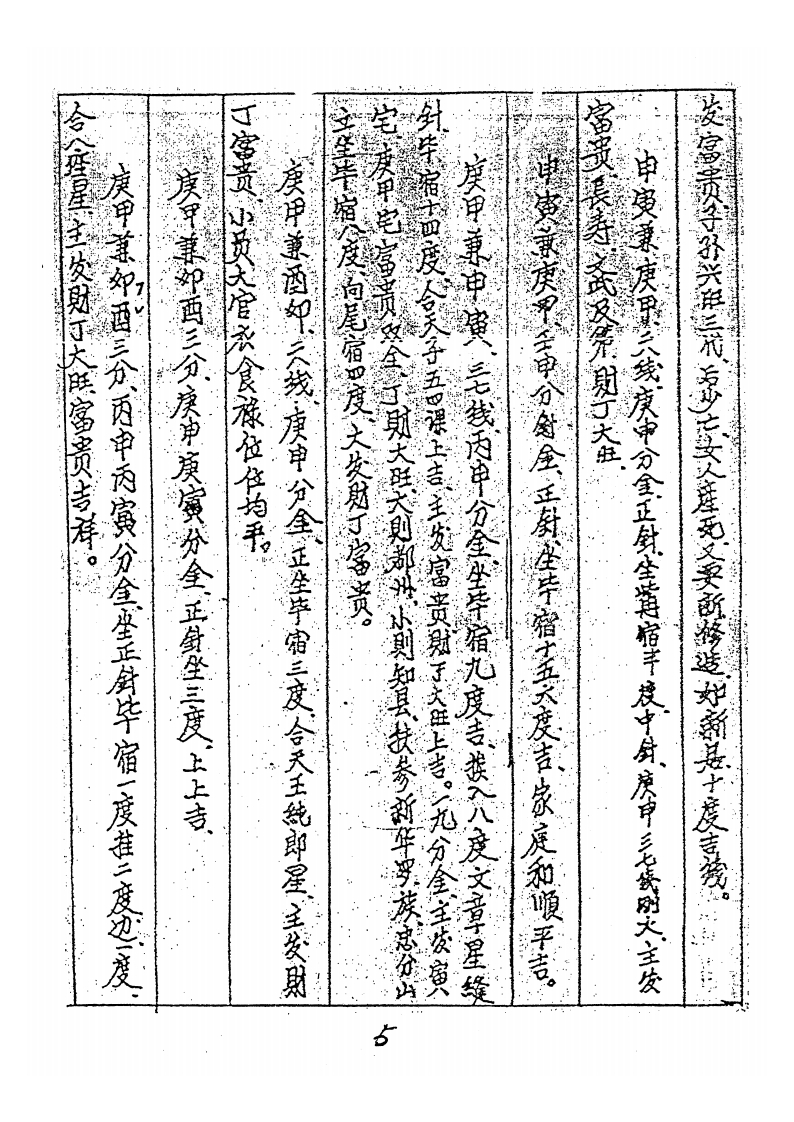 发富贵、子孙兴旺三代、后少亡、女人産死、又要断修造、如新昌十度吉钱。
申寅兼庚甲、二八线、庚申分金、正針、坐觜宿半度、中針、庚申三七线則火、主发
富贵長寿、文武及第、財丁大旺、
申寅兼庚甲、壬申分針金、正針、坐毕宿十五六度吉、家庭和順平吉。
庚甲兼申寅、三七线、丙申分金、坐毕宿九度吉、拨入八度文章星、縫
針、毕宿十四度、合天子五四課上吉、主发富贵財丁大旺上吉。一九分金、主发寅
宅、庚甲宅富贵双全、丁財大旺、大則都州、小則知县、扶参新华罗族、忠分山
立坐毕宿八度、向尾宿四度、大发財丁富贵。
庚甲兼酉卯、二八线、庚申分金、正坐毕宿三度、合天王純郎星、主发財
丁富贵、小员大官衣食祿位位均平。
庚甲兼卯酉三分、庚申庚寅分金、正針坐三度、上上吉、
庚甲兼卯酉三分、丙申丙寅分金、坐正針毕宿一度挂二度边一度、
合八座星、主发財丁大旺、富贵吉祥。
5